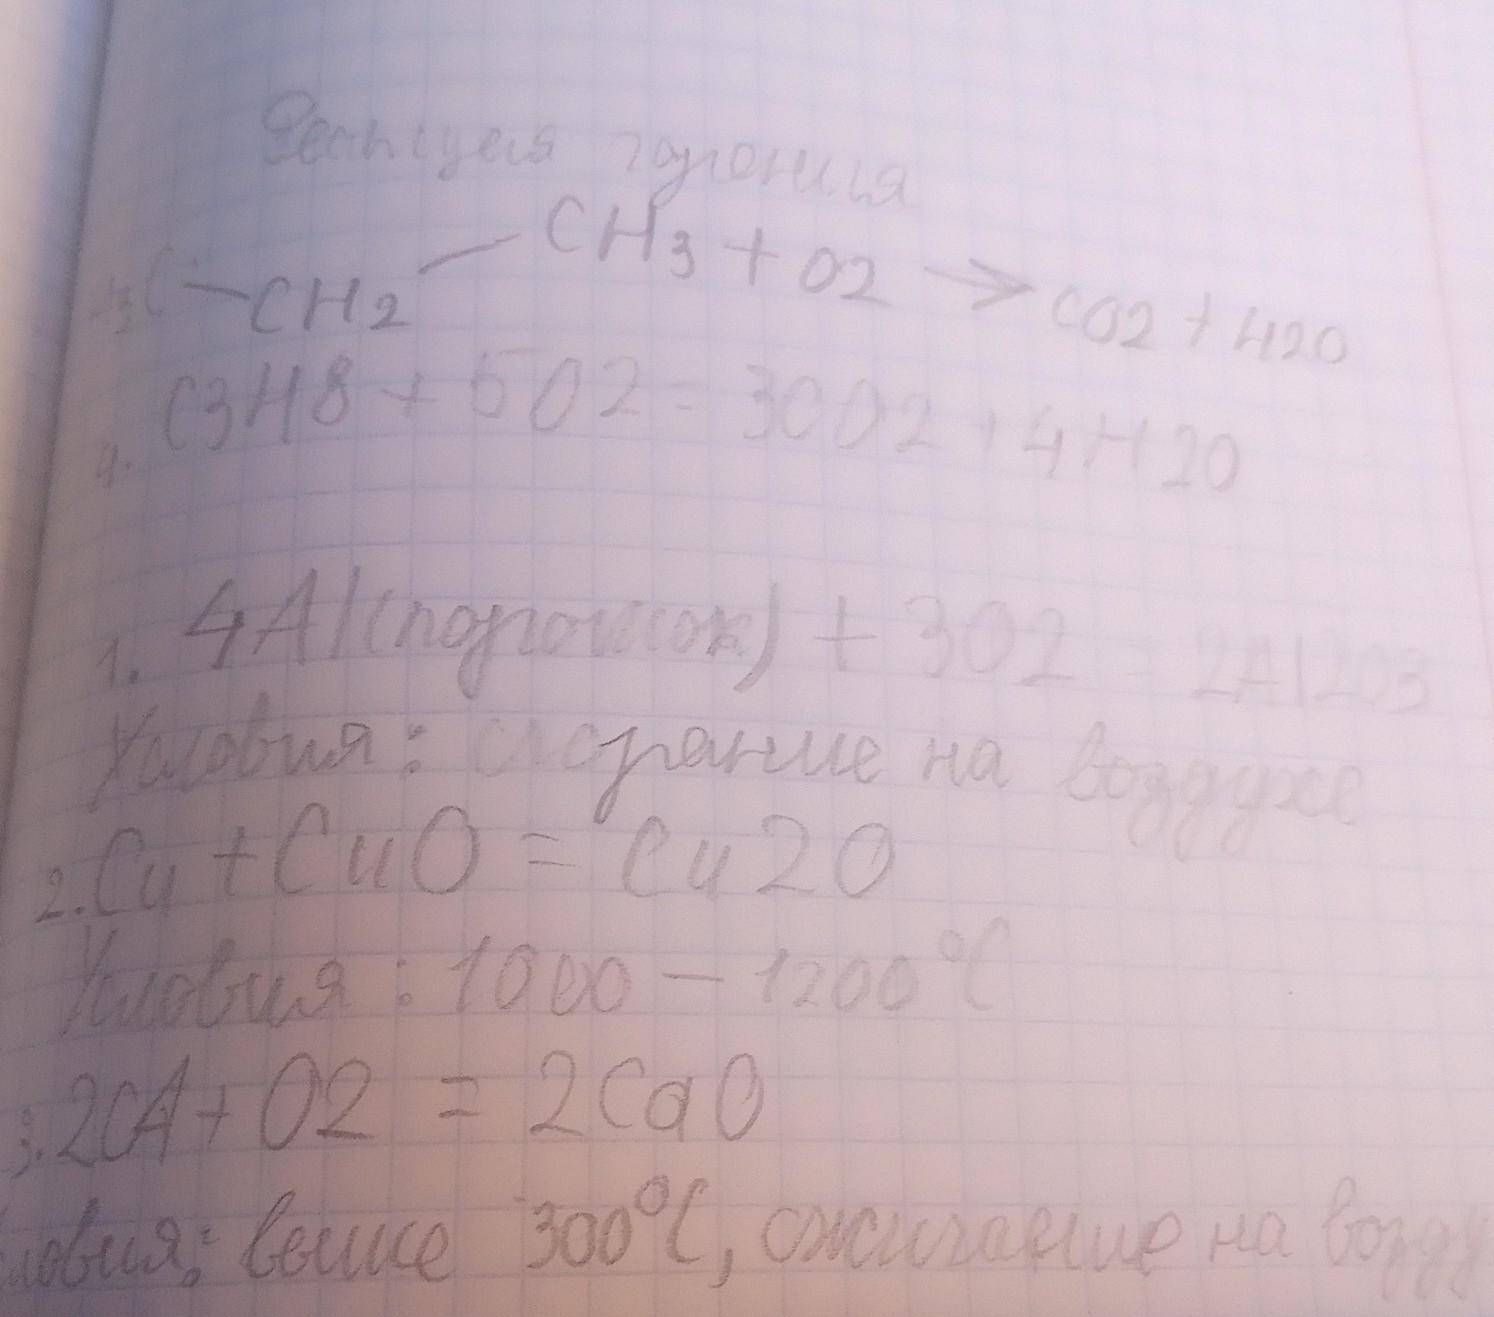 Реакция горения
H3C — CH2 — CH3 + O2 → CO2 + H2O
4. C3H8 + 5O2 = 3CO2 + 4H2O
1. 4Al(порошок) + 3O2 = 2Al2O3
Условия: сгорание на воздухе
2. Cu + CuO = Cu2O
Условия: 1000 – 1200°C
3. 2CA + O2 = 2CaO
ловия: выше 300°C, сжигание на возду